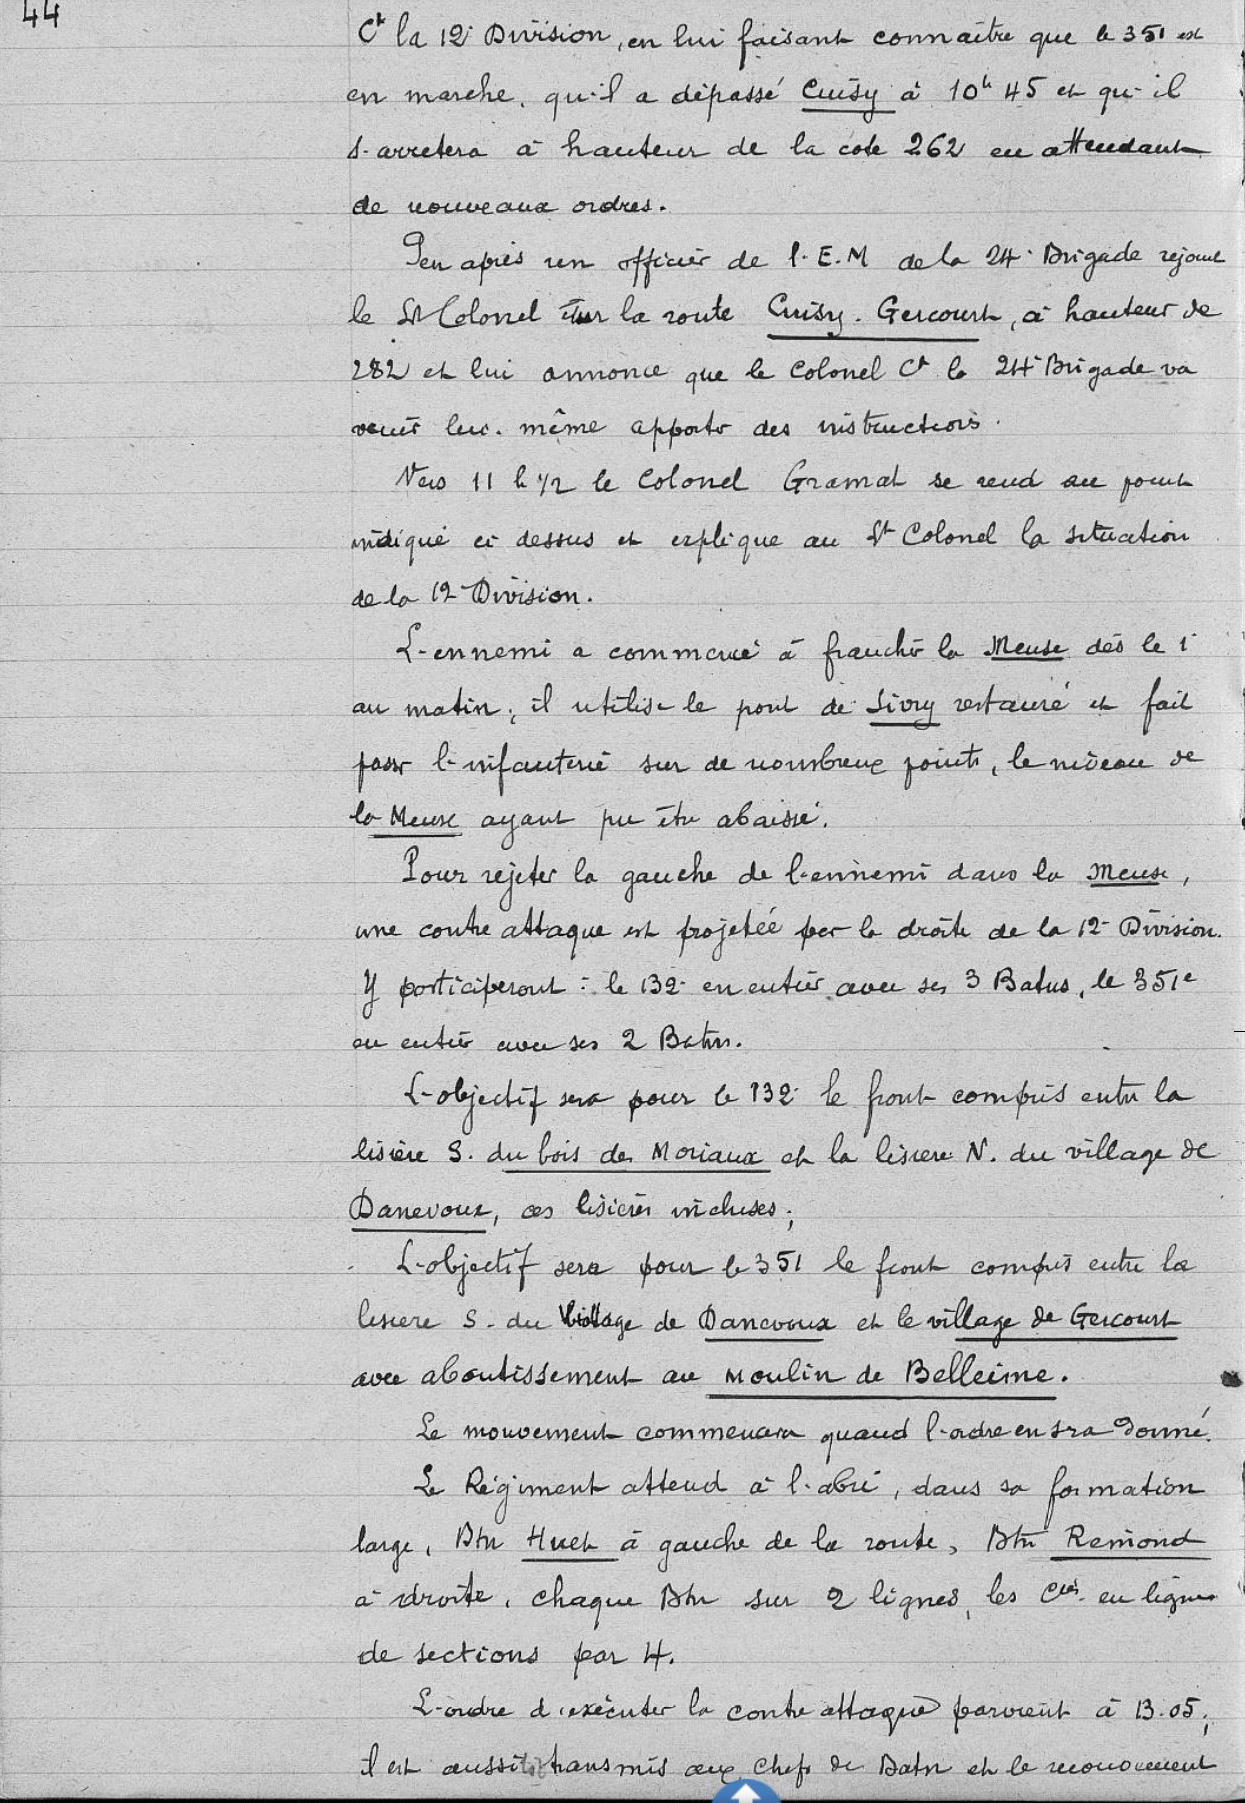 44
Ct la 12e Division, en lui faisant connaître que le 351 est
en marche, qu'il a dépassé Cuisy à 10h 45 et qu'il
s'arretera à hauteur de la cote 262 en attendant
de nouveaux ordres.
Peu après un officier de l'E.M de la 24e Brigade rejoint
le Lt Colonel sur la route Cuisy. Gercourt, à hauteur de
282 et lui annonce que le Colonel Ct la 24e Brigade va
venir lui-même apporter des instructions.
Vers 11 h 1/2 le Colonel Gramat se rend au point
indiqué ci dessus et explique au Lt Colonel la situation
de la 12e Division.
L'ennemi a commencé à franchir la Meuse dès le 1r
au matin; il utilise le pont de Sivry restauré et fait
passer l'infanterie sur de nombreux points, le niveau de
la Meuse ayant pu être abaissé.
Pour rejeter la gauche de l'ennemi dans la Meuse,
une contre attaque est projetée par la droite de la 12e Division.
Y participeront : le 132e en entier avec ses 3 Batns, le 351e
en entier avec ses 2 Batns.
L'objectif sera pour le 132e le front compris entre la
lisière S. du bois de Moriaux et la lisière N. du village de
Danevoux, ces lisières incluses;
L'objectif sera pour le 351 le front compris entre la
lisière S. du Village de Danevoux et le village de Gercourt
avec aboutissement au Moulin de Belleime.
Le mouvement commencera quand l'ordre en sera donné.
Le Régiment attend à l'abri, dans sa formation
large, Btn Huet à gauche de la route, Btn Remond
à droite, chaque Btn sur 2 lignes, les Cies en lignes
de sections par 4.
L'ordre d'exécuter la contre attaque parvient à 13.05;
il est aussitôt transmis aux chefs de Batn et le mouvement